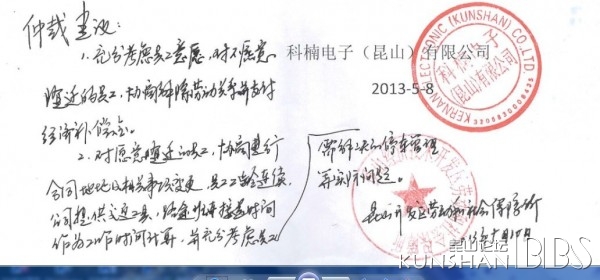 仲裁建议:
1、充分考虑员工意愿,对不愿意
搬迁的员工,协商解除劳动关系并支付
经济补偿金。
2、对愿意搬迁的员工,协商进行
合同地址及相关事项变更,员工工龄连续,
公司提供交通工具,
作为工作时间计算,并充分考虑员工
需解决的停车管理
等实际问题。
昆山开发区劳动和社会保障所
科楠电子(昆山)有限公司
2013-5-8
KERNAN ELECTRONIC (KUNSHAN) CO.,LTD.
科楠电子
(昆山)有限公司
昆山论坛
KUNSHAN BBS